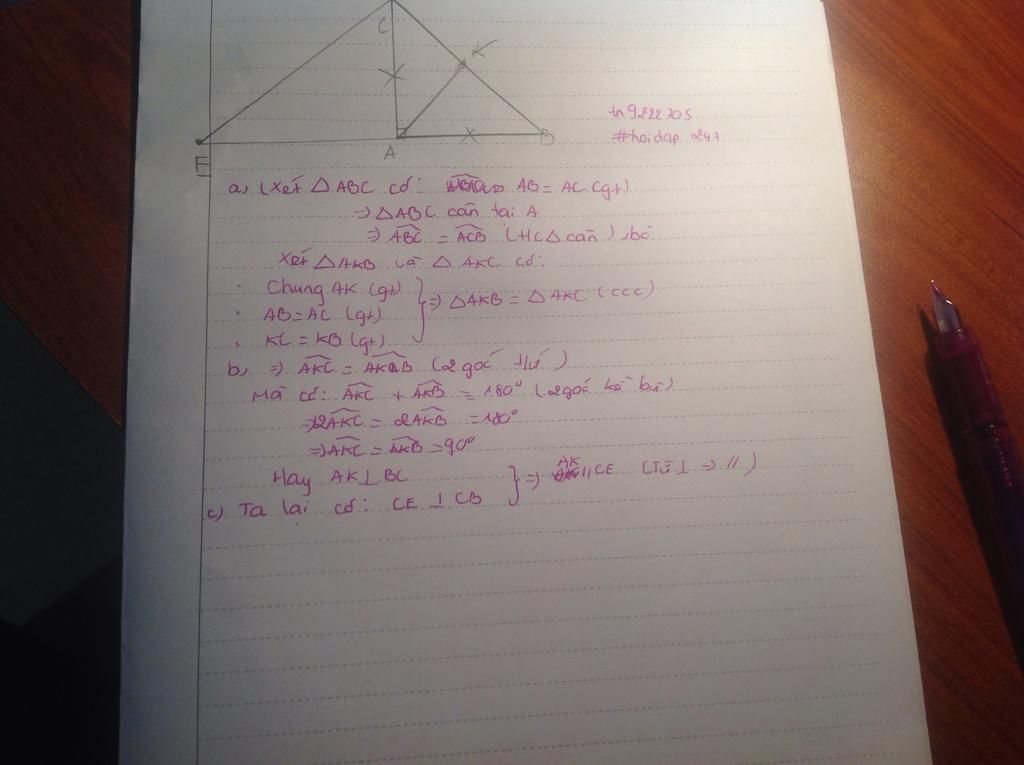 C
K
E
A
B
tn9222705
#hoidap 247
a, (Xét △ABC có: AB = AC (gt)
=> △ABC cân tại A
=> ABC = ACB (t/c △ cân), bỏ
Xét △AKB và △AKC có:
Chung AK (gt)
AB = AC (gt) } => △AKB = △AKC (ccc)
KC = KB (gt)
b, => AKC = AKB (2 góc t/ứ)
Mà có: AKC + AKB = 180° (2 góc kề bù)
=> 2AKC = 2AKB = 180°
=> AKC = AKB = 90°
Hay AK ⊥ BC } => AK // CE (Từ ⊥ => //)
c) Ta lại có: CE ⊥ CB